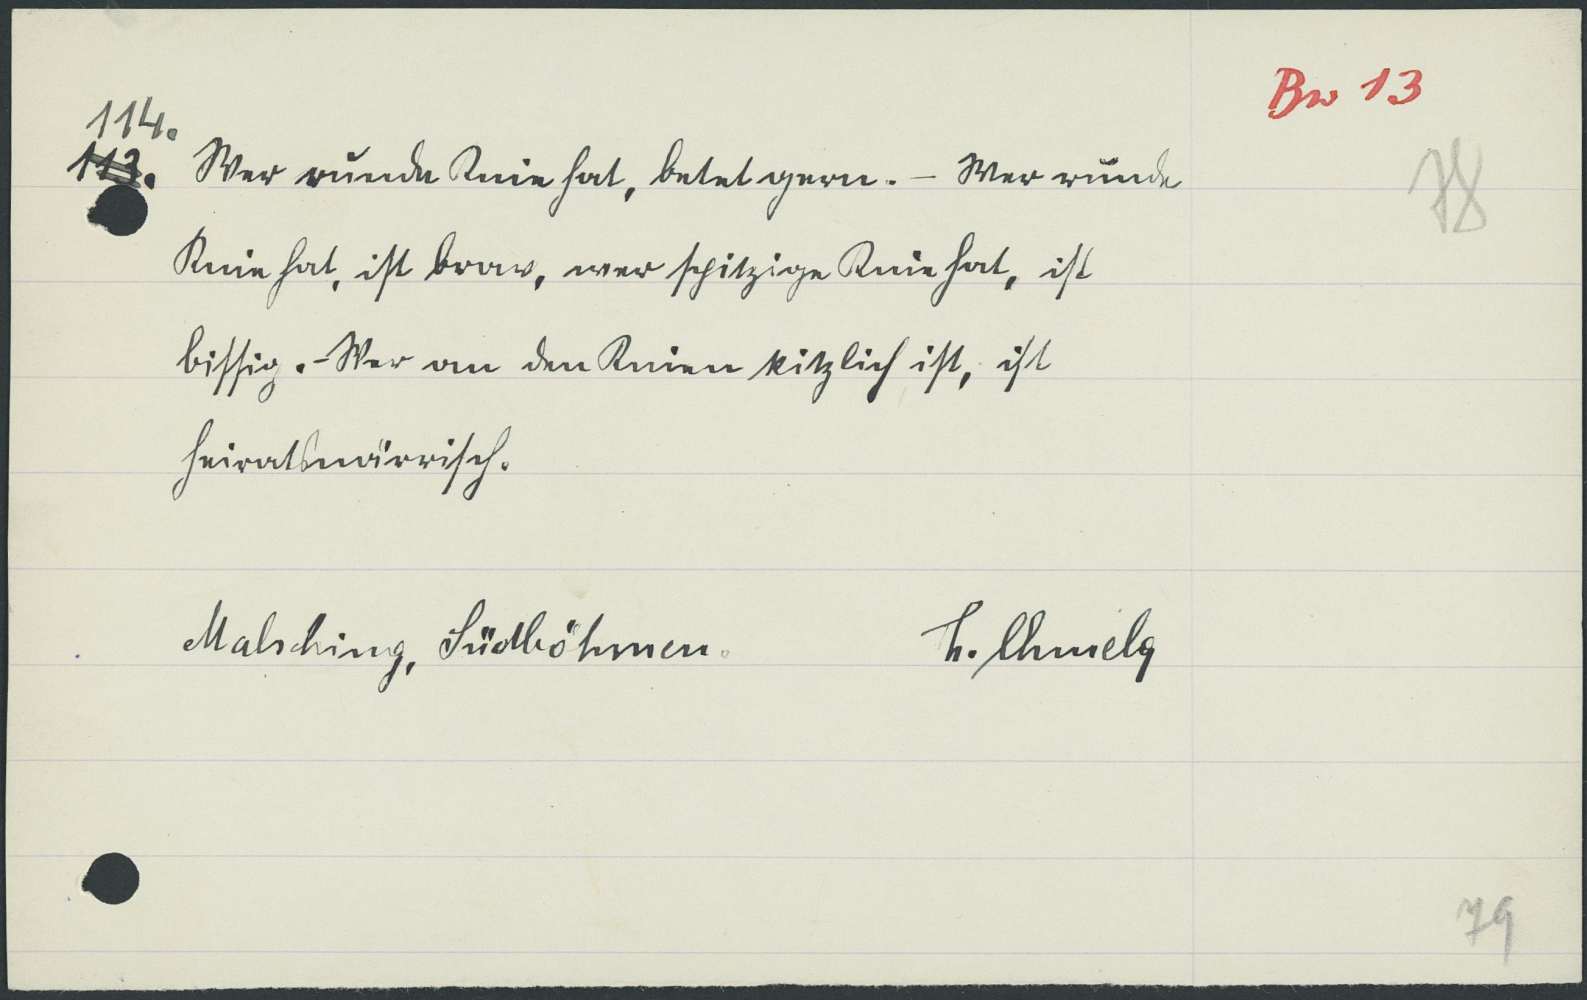 Bw 13
114.
113. Wer runde Knie hat, betet gern. – Wer runde
78
Knie hat, ist brav, wer spitzige Knie hat, ist
bissig. – Wer an den Knien kitzlich ist, ist
heiratsnärrisch.
Malsching, Südböhmen. h. Chmely
79